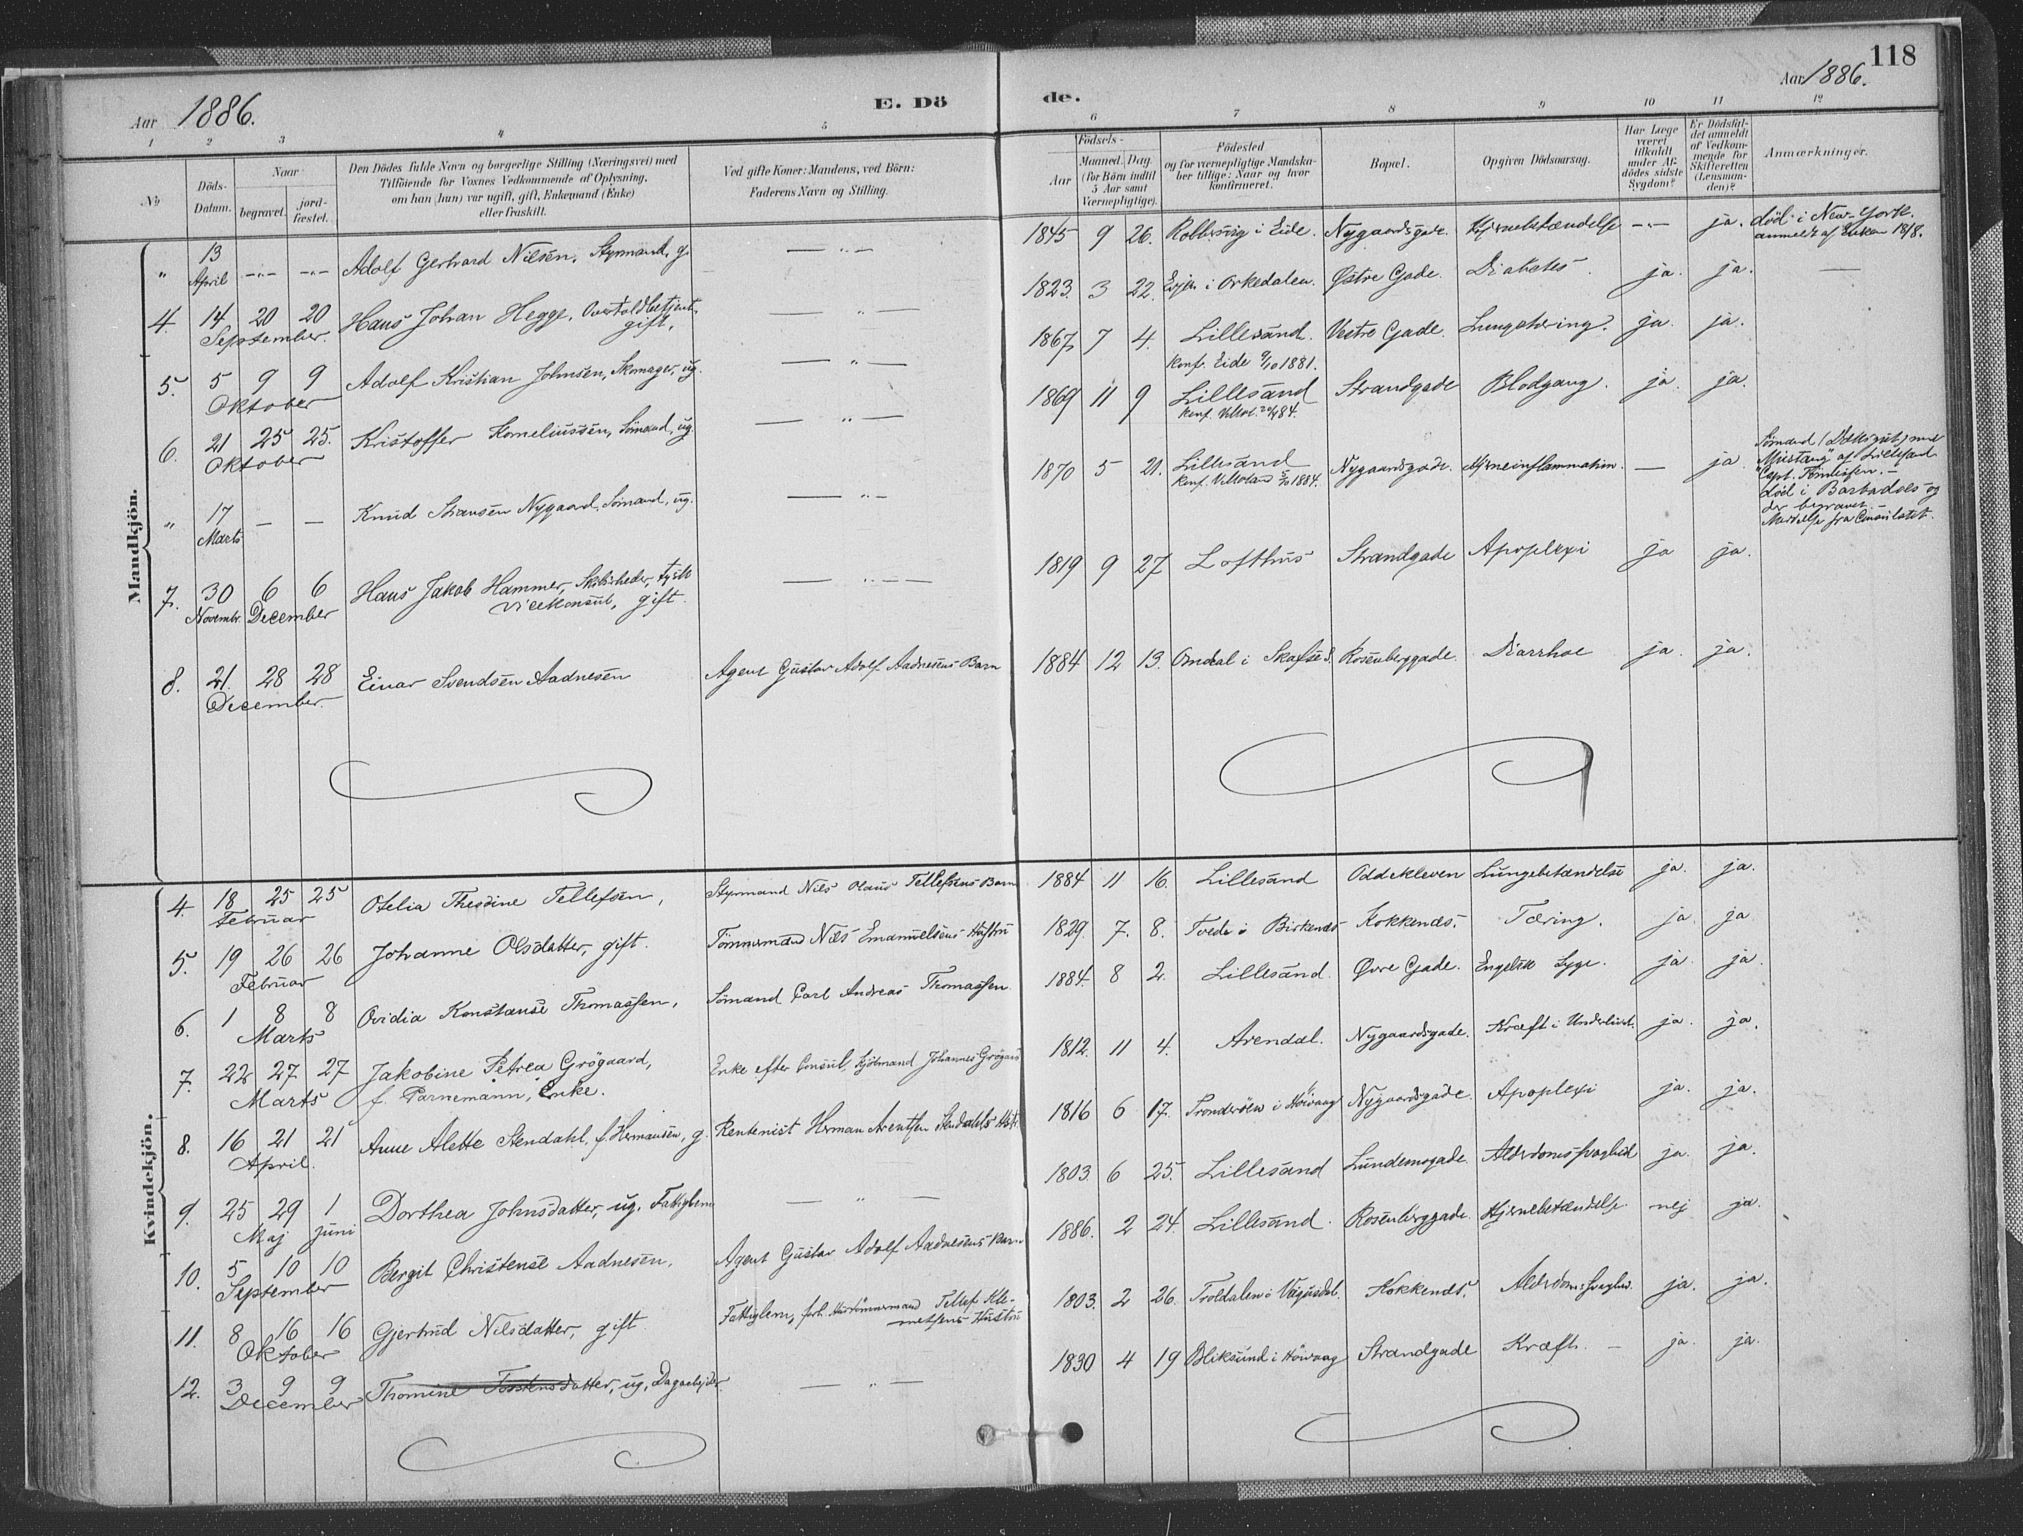 118
Aar 1886.
E. Dö
de.
Aar 1886.
1 2 3 4 5 6 7 8 9 10 11 12
No
Döds-Datum.
Naar
begravet.
jord-fæstet.
Den Dödes fulde Navn og borgerlige Stilling (Næringsvei) med
Tilföiende for Voxnes Vedkommende af Oplysning,
om han (hun) var ugift, gift, Enkemand (Enke)
eller fraskilt.
Ved gifte Koner: Mandens, ved Börn:
Faderens Navn og Stilling.
Födsels-
Aar
Maaned. Dag.
(for Börn indtil
5 Aar samt
Værnepligtige).
Födested
og for værnepligtige Mandska-
ber tillige: Naar og hvor
konfirmeret.
Bopæl.
Opgiven Dödsaarsag.
Har Læge
været
tilkaldt
under Af-
dödes sidste
Sygdom?
Er Dödsfal-
det anmeldt
af Vedkom-
mende for
Skifteretten
(Lensman-
den)?
Anmærkninger.
Mandkjön.
" 13 April —"— —"— Adolf Gerhard Nielsen, Styrmand, g. —"— 1845 9 26. i Eide. Nygaardsgade. Hjernebetændelse —"— ja. död i New-York.
anmeldt af Enken 18/8.
4. 14 20 20 September. Hans Johan Hegge, Overtoldbetjent, gift, —"— 1823. 3 22. i Orkedalen. Østre Gade. Diabetes. ja. ja. —
5. 5 9 9 Oktober Adolf Kristian Johnsen, Skomager, ug. —"— 1867 7 4. Lillesand. Vestre Gade. Lungetæring. ja. ja.
konf. Eide 9/10 1881.
6. 21 25 25. Oktober Kristoffer Korneliussen, Sömand, ug. —"— 1869 11 9 Lillesand Strandgade Blodgang. ja. ja.
konf. 84.
" 17 Marts — — Knud Nygaard, Sömand, ug. —"— 1870 5 21. Lillesand Nygaardsgade. Hjerneinflammation. — ja
konf. 1884.
Sömand (Dæksgut) med
"Mustang" af Lillesand
Capt.
död i Barbadoes og
der begravet.
Meddelse fra Consulatet.
7. 30 Novembr. 6 6 December Hans Jakob Hammer, Skibsreder, tysk
Vicekonsul, gift. —"— 1819 9 27 Lofthus Strandgade Apoplexi ja ja.
8. 21. 28 28 December. Einar Svendsen Aadnesen Agent Gustav Adolf Aadnesens Barn 1884 12 13. Omdal i Rosenberggade. Diarrhoe ja. ja.
Kvindekjön.
4. 18 25 25 Februar Otelia Thesdine Tellefsen, Styrmand Nils Olaus Tellefsens Barn 1884 11 16. Lillesand Oddekleven Lungebetændelse ja. ja.
5. 19 26 26 Februar Johanne Olsdatter, gift. Tömmermand Nils Emanuelsens Hustru 1829. 7. 8. Tvede i Birkenæs Kokkenæs. Tæring. ja. ja
6. 1 8 8 Marts Ovidia Konstanse Thomassen, Sömand Carl Andreas Thomassen 1884. 8 2. Lillesand. Øvre Gade. Engelsk Syge. ja. ja.
7. 22 27 27 Marts Jakobine Petrea Grögaard,
f. Parnemann, Enke. Enke efter Consul, Kjöbmand Johannes Grögaard 1812. 11 4. Arendal. Nygaardsgade. Kræft i Underlivet. ja. ja.
8. 16 21 21 April. Anne Alette Stendahl, f. Hermansen, g. Rentenist Herman Arentsen Stendahls Hst. 1816 6 17. i Höivaag Nygaardsgade. Apoplexi ja. ja.
9. 25 29 Maj 1 Juni Dorthea Johnsdatter, ug. Fattiglem —"— 1803. 6 25. Lillesand Lundemogade. Alderdomssvaghed ja. ja.
10. 5 10 10 September Bergit Christense Aadnesen, Agent Gustav Adolf Aadnesens Barn 1886. 2 24. Lillesand. Rosenberggade. Hjernebetændelse nej ja.
11. 8 16 16 Oktober Gjertrud Nilsdatter, gift. Fattiglem, forh. Hustömmermand Tellef Kle-
metsens Hustru 1803. 2 26. Troldalen i Vegusdal. Kokkenæs. Alderdomssvaghed. ja. ja.
12. 3 9 9 December Thomine Torstensdatter, ug. Dagarbejder —"— 1830 4 19 Bliksund i Höivaag Strandgade Kræft. — ja. ja.